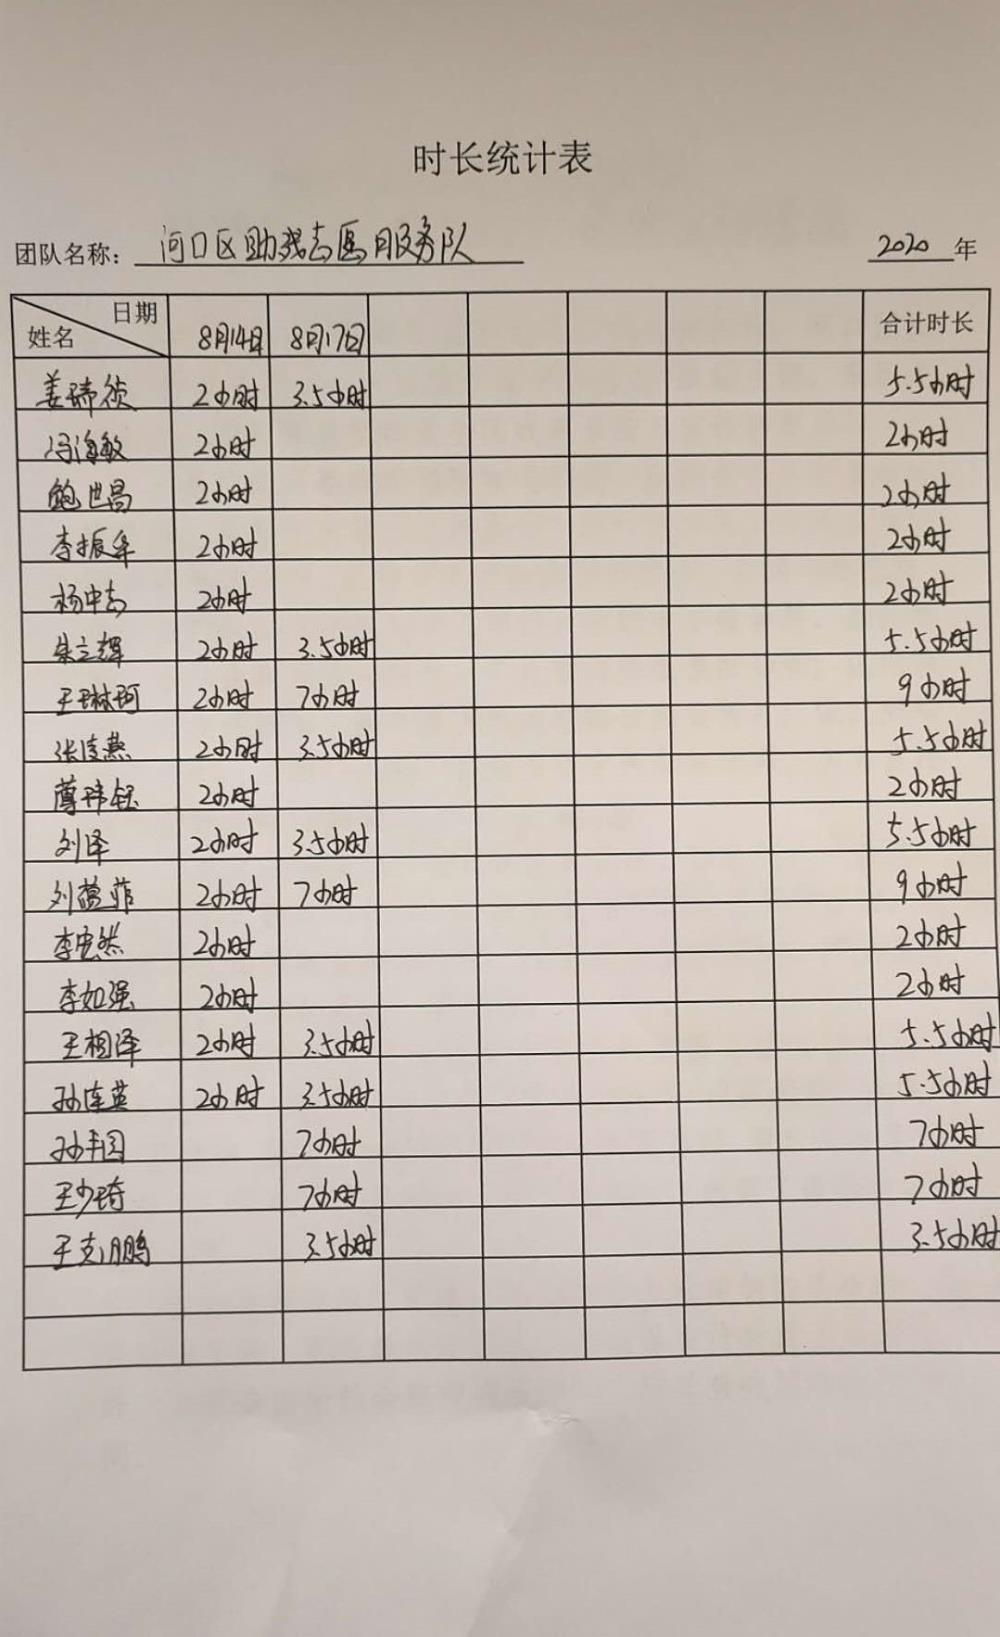 时长统计表
团队名称: 河口区助残志愿服务队 2020 年
日期
姓名 8月14日 8月17日 合计时长
姜瑞祯 2小时 3.5小时 5.5小时
冯海敏 2小时 2小时
鲍世昌 2小时 2小时
李振华 2小时 2小时
杨中志 2小时 2小时
朱立辉 2小时 3.5小时 5.5小时
王琳珂 2小时 7小时 9小时
张连燕 2小时 3.5小时 5.5小时
2小时 2小时
刘泽 2小时 3.5小时 5.5小时
刘菲 2小时 7小时 9小时
李宏然 2小时 2小时
李如强 2小时 2小时
王相泽 2小时 3.5小时 5.5小时
孙连英 2小时 3.5小时 5.5小时
孙 7小时 7小时
王少琦 7小时 7小时
王志鹏 3.5小时 3.5小时